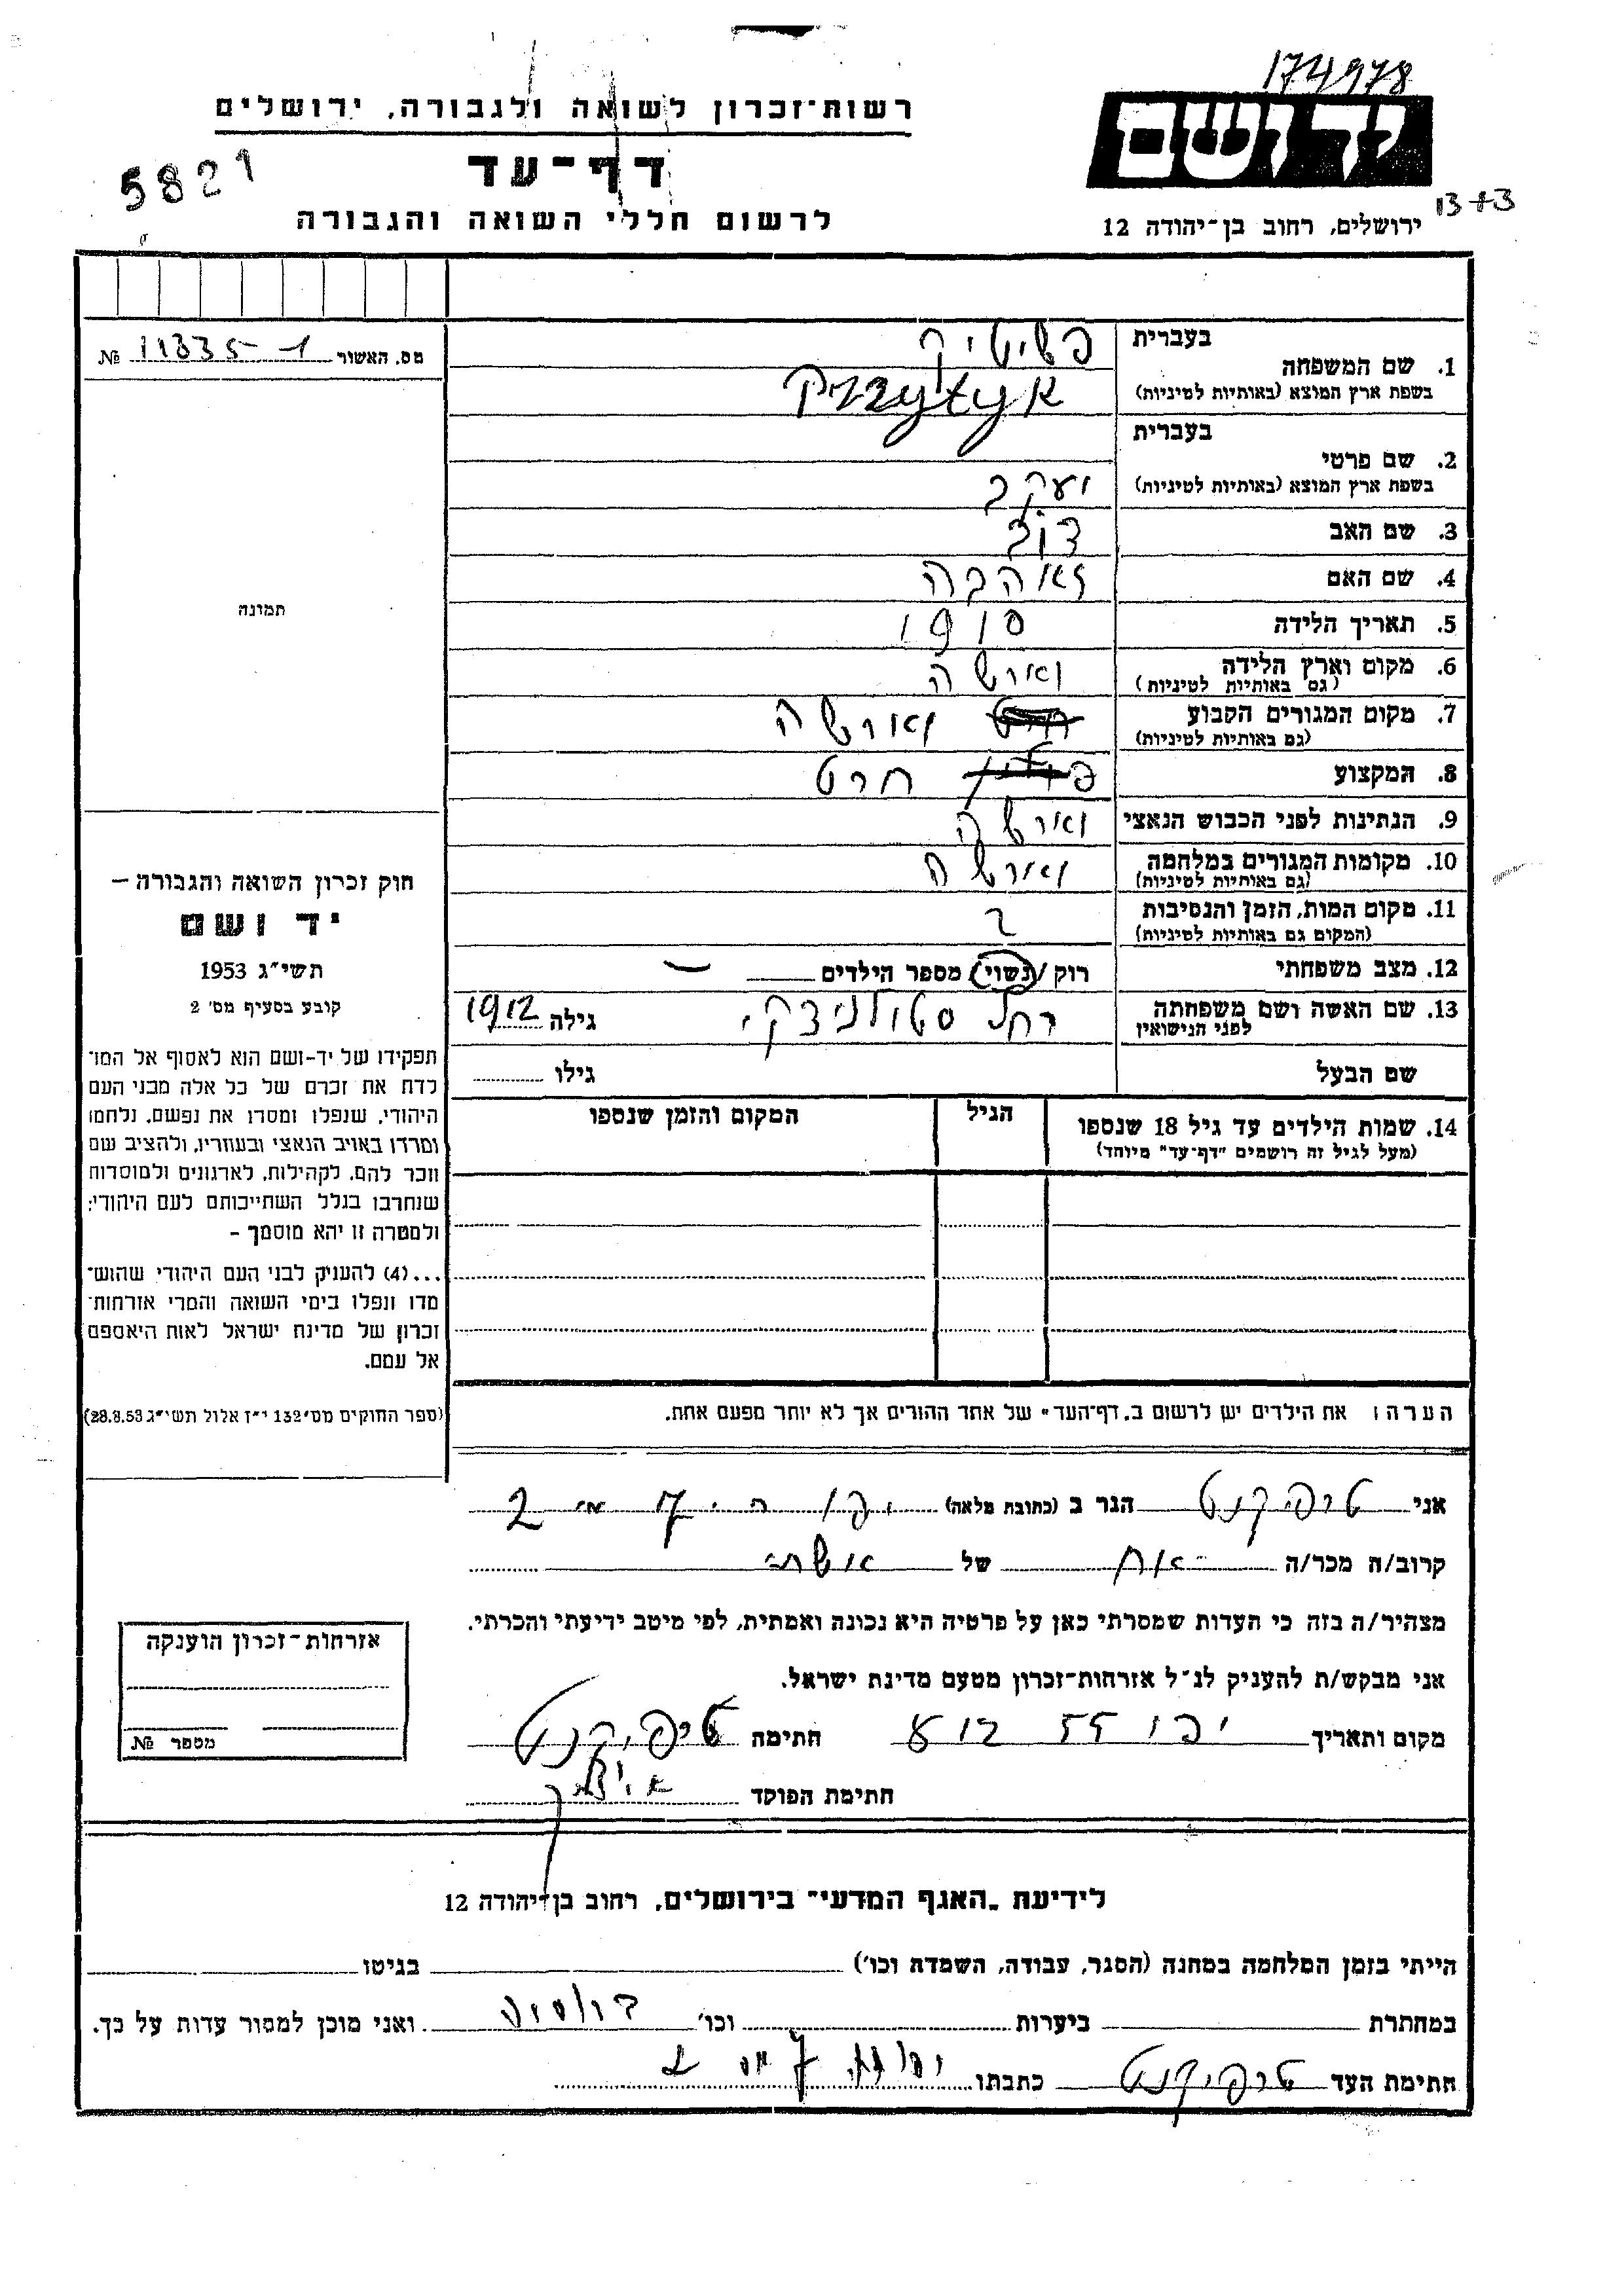 174978
יד ושם
רשות-זכרון לשואה ולגבורה, ירושלים
5821
דף-עד
13+3
לרשום חללי השואה והגבורה
ירושלים, רחוב בן-יהודה 12
מס. האשור 11335-1 №
תמונה
חוק זכרון השואה והגבורה –
יד ושם
תשי״ג 1953
קובע בסעיף מס' 2
תפקידו של יד-ושם הוא לאסוף אל המו-
לדת את זכרם של כל אלה מבני העם
היהודי, שנפלו ומסרו את נפשם, נלחמו
ומרדו באויב הנאצי ובעוזריו, ולהציב שם
וזכר להם, לקהילות, לארגונים ולמוסדות
שנחרבו בגלל השתייכותם לעם היהודי;
ולמטרה זו יהא מוסמך –
...(4) להעניק לבני העם היהודי שהוש-
מדו ונפלו בימי השואה והמרי אזרחות-
זכרון של מדינת ישראל לאות היאספם
אל עמם.
(ספר החוקים מס' 132 י״ז אלול תשי״ג 28.8.53)
1. שם המשפחה
בעברית פשיטיק
בשפת ארץ המוצא (באותיות לטיניות) Przytyk
2. שם פרטי
בעברית
בשפת ארץ המוצא (באותיות לטיניות) יעקב
3. שם האב דוד
4. שם האם
5. תאריך הלידה 1910
6. מקום וארץ הלידה ווארשה
(גם באותיות לטיניות)
7. מקום המגורים הקבוע ווארשה
(גם באותיות לטיניות)
8. המקצוע פולין חרט
9. הנתינות לפני הכבוש הנאצי ווארשה
10. מקומות המגורים במלחמה ווארשה
(גם באותיות לטיניות)
11. מקום המות, הזמן והנסיבות
(המקום גם באותיות לטיניות)
12. מצב משפחתי רוק / נשוי / מספר הילדים –
13. שם האשה ושם משפחתה רחל סטולניצקי גילה 1912
לפני הנישואין
שם הבעל גילו
14. שמות הילדים עד גיל 18 שנספו הגיל המקום והזמן שנספו
(מעל לגיל זה רושמים "דף-עד" מיוחד)
הערה: את הילדים יש לרשום ב"דף-העד" של אחד ההורים אך לא יותר מפעם אחת.
אני הגר ב (כתובת מלאה) יפו
קרוב/ה מכר/ה אח של אשתו
מצהיר/ה בזה כי העדות שמסרתי כאן על פרטיה היא נכונה ואמתית, לפי מיטב ידיעתי והכרתי.
אני מבקש/ת להעניק לנ״ל אזרחות-זכרון מטעם מדינת ישראל.
מקום ותאריך יפו חתימה
חתימת הפוקד
אזרחות-זכרון הוענקה
מספר №
לידיעת "האגף המדעי" בירושלים, רחוב בן-יהודה 12
הייתי בזמן המלחמה במחנה (הסגר, עבודה, השמדה וכו') בגיטו
במחתרת ביערות וכו' ברוסיה ואני מוכן למסור עדות על כך.
חתימת העד כתבתו